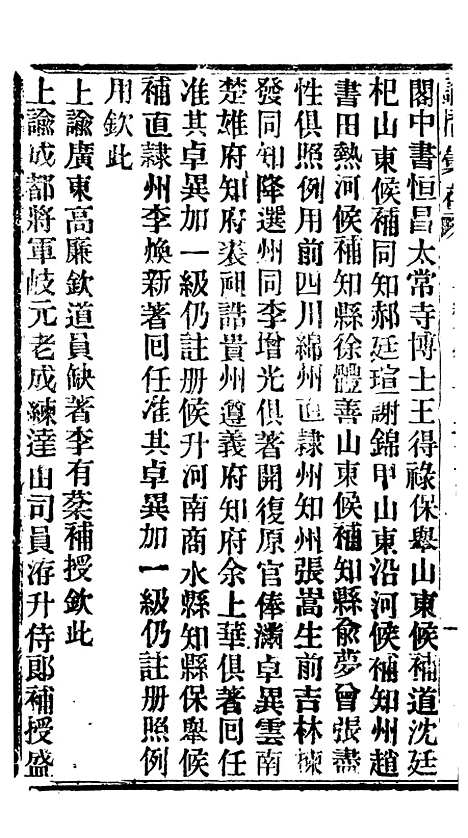 閣中書恒昌太常寺博士王得祿保舉山東候補道沈廷
杞山東候補同知郝廷瑄謝錦甲山東沿河候補知州趙
書田熱河候補知縣徐體善山東候補知縣俞夢曾張盡
性俱照例用前四川綿州直隸州知州張嵩生前吉林揀
發同知降選州同李增光俱著開復原官俸滿卓異雲南
楚雄府知府裴祠誥貴州遵義府知府余上華俱著回任
准其卓異加一級仍註册候升河南商水縣知縣保舉候
補直隸州李煥新著回任准其卓異加一級仍註册照例
用欽此
上諭廣東高廉欽道員缺著李有棻補授欽此
上諭成都將軍岐元老成練達由司員洊升侍郎補授盛